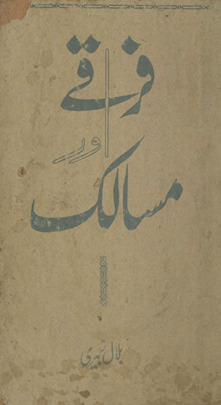 فرقے
اور
مسالک
بلال زبیری